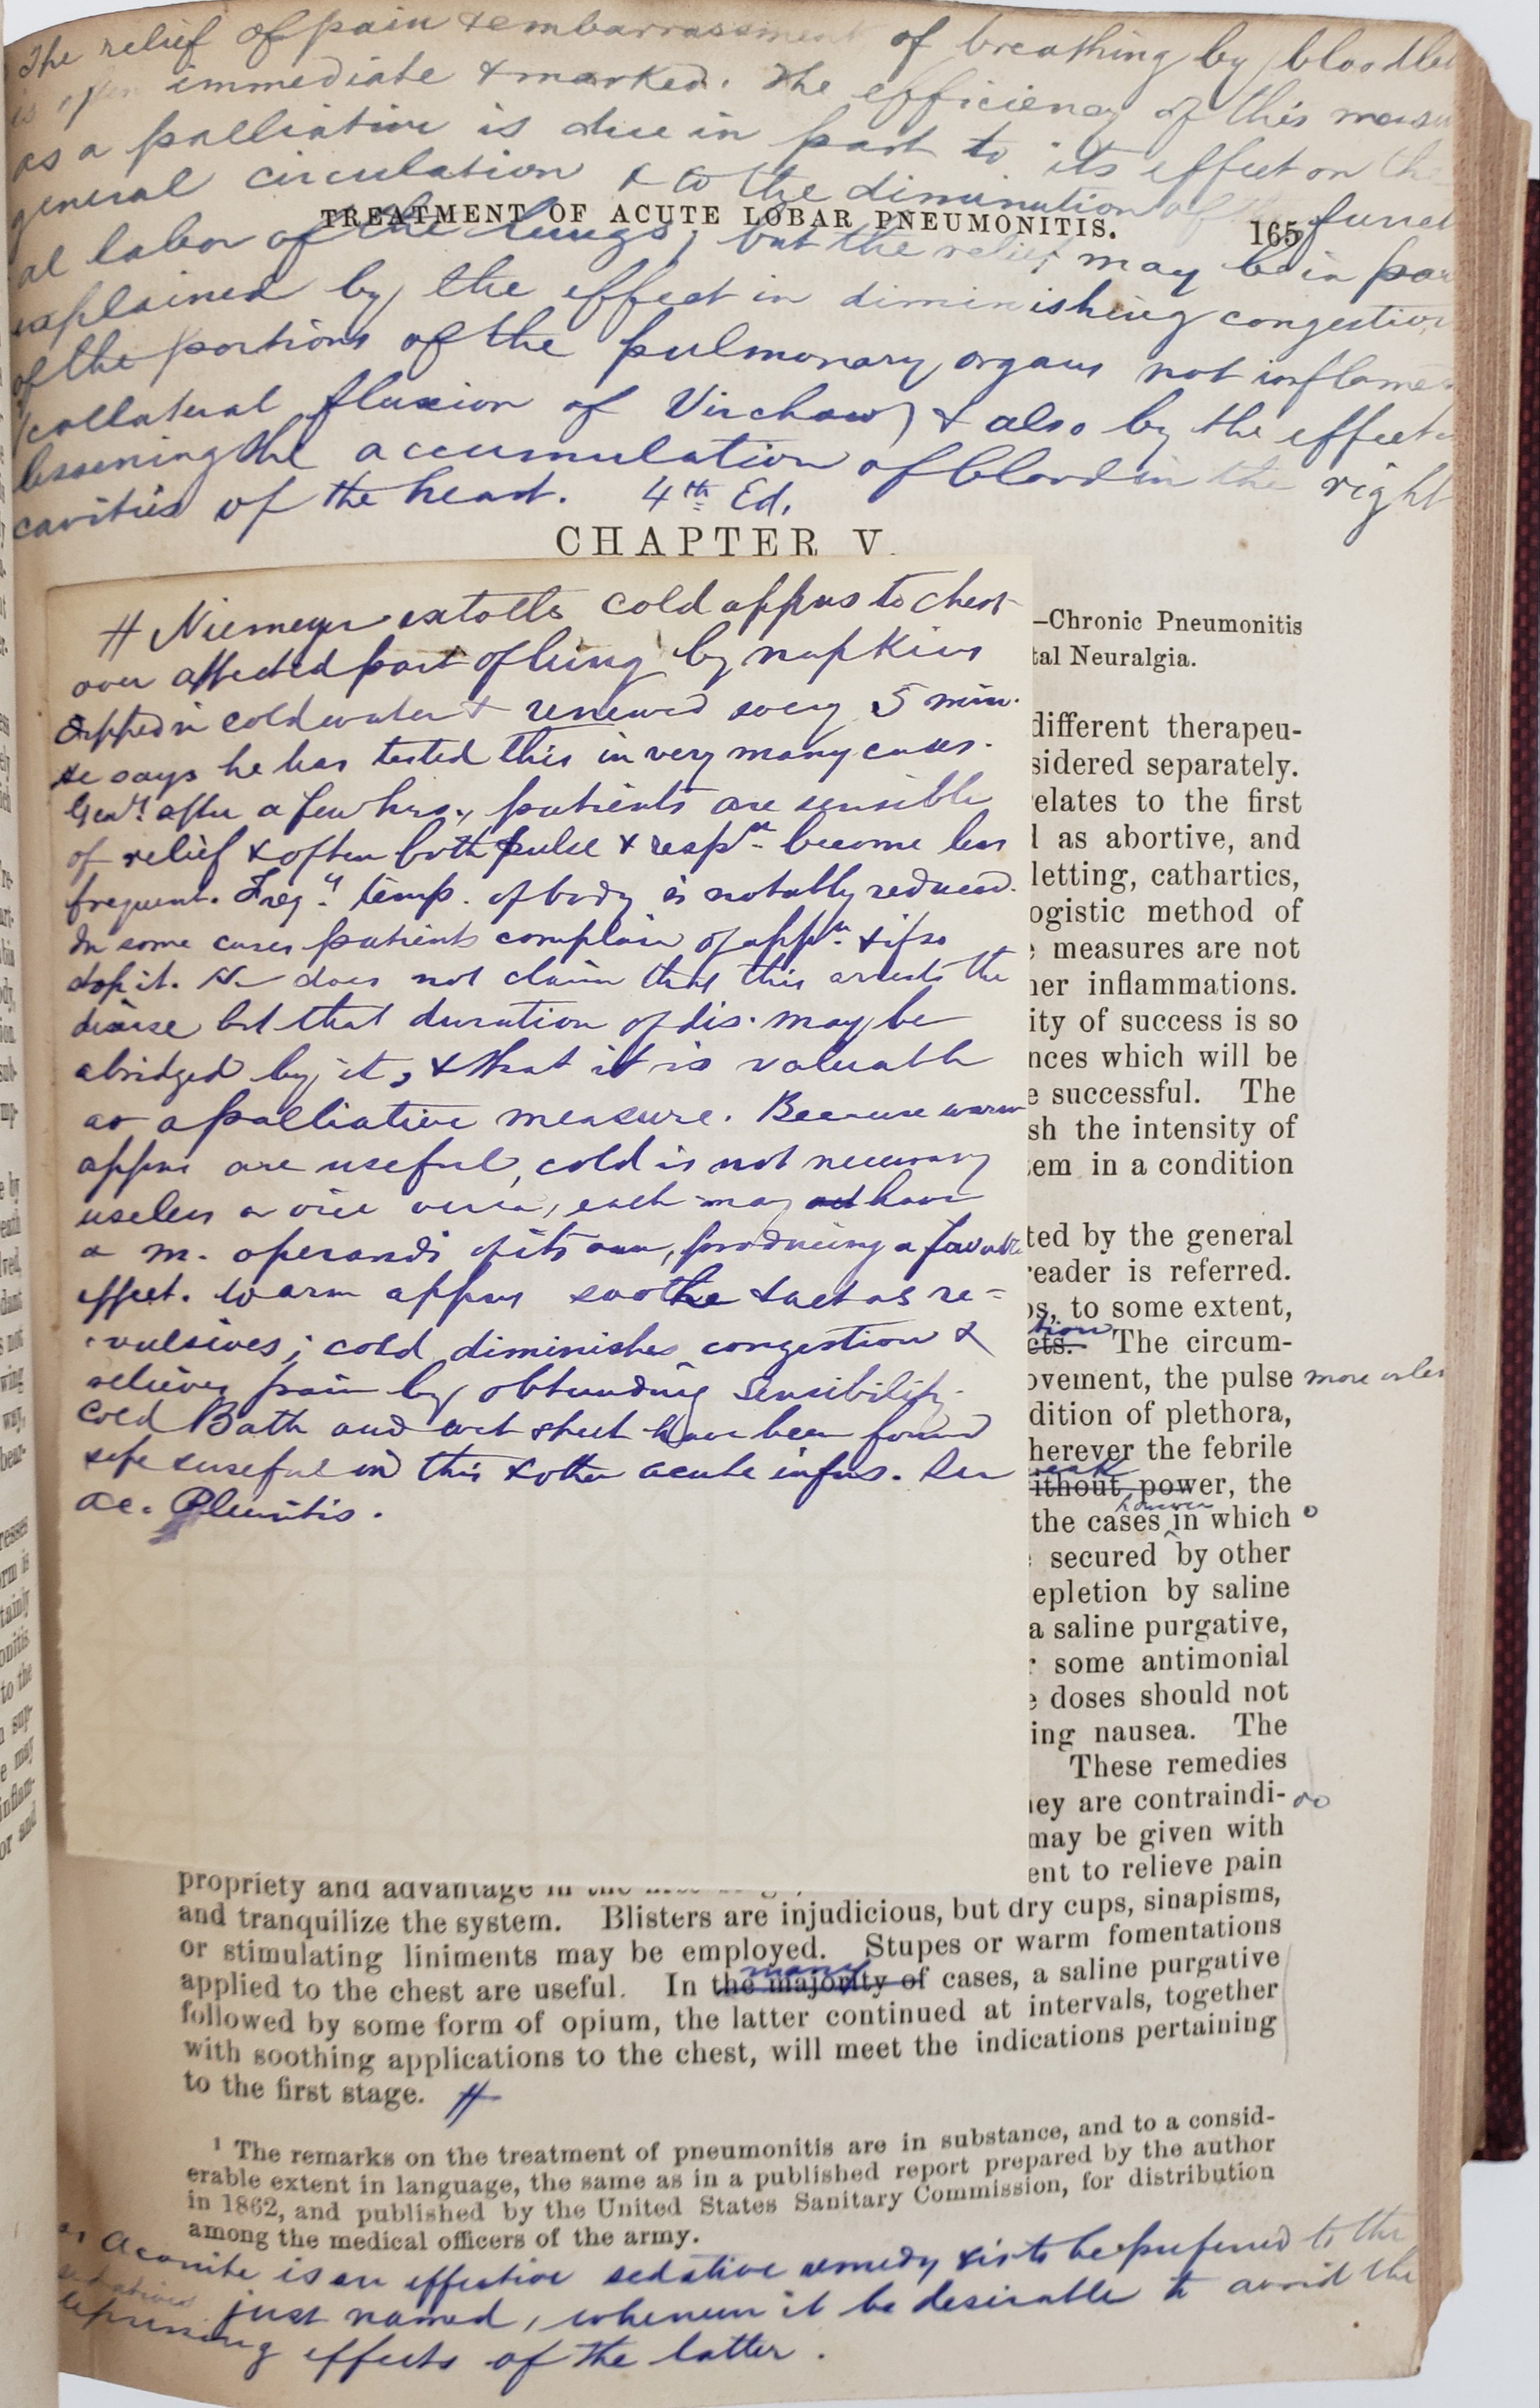 The relief of pain & embarrassment of breathing by bloodlet
is often immediate & marked. The efficiency of this measu
as a palliative is due in part to its effect on the
general circulation & to the diminution of the funct
TREATMENT OF ACUTE LOBAR PNEUMONITIS. 165
al labor of the lungs; but the relief may be in par
explained by the effect in diminishing congestion
of the portions of the pulmonary organs not inflamed
(collateral fluxion of Virchow) & also by the effect
lessening the accumulation of blood in the right
cavities of the heart. 4th Ed.
CHAPTER V.
# Niemeyer extolls cold appns to chest
over affected part of lung by napkins
dipped in cold water & renewed every 5 min.
He says he has tested this in very many cases.
Genly after a few hrs., patients are sensible
of relief & often both pulse & respn become less
frequent. Freqy temp. of body is notably reduced.
In some cases patients complain of appn & if so
stop it. He does not claim that this arrests the
disease but that duration of dis. may be
abridged by it, & that it is valuable
as a palliative measure. Because warm
appns are useful, cold is not necessary
useless or vice versa, each may have
a m. operandi of its own, producing a favorable
effect. Warm appns soothe & act as re=
vulsives; cold diminishes congestion &
relieves pain by obtunding sensibility.
Cold Bath and wet sheet have been found
safe & useful in this & other acute infns. See
ac. Pleuritis.
—Chronic Pneumonitis
tal Neuralgia.
different therapeu-
sidered separately.
elates to the first
l as abortive, and
letting, cathartics,
ogistic method of
measures are not
ner inflammations.
ity of success is so
nces which will be
e successful. The
sh the intensity of
em in a condition
ted by the general
reader is referred.
os, to some extent,
tion
cts. The circum-
ovement, the pulse more or less
dition of plethora,
herever the febrile
weak
ithout power, the
however
the cases in which
secured by other
epletion by saline
a saline purgative,
r some antimonial
e doses should not
ing nausea. The
These remedies
ey are contraindi-
may be given with
ent to relieve pain
propriety and advantage in the
and tranquilize the system. Blisters are injudicious, but dry cups, sinapisms,
or stimulating liniments may be employed. Stupes or warm fomentations
many
applied to the chest are useful. In the majority of cases, a saline purgative
followed by some form of opium, the latter continued at intervals, together
with soothing applications to the chest, will meet the indications pertaining
to the first stage. #
1 The remarks on the treatment of pneumonitis are in substance, and to a consid-
erable extent in language, the same as in a published report prepared by the author
in 1862, and published by the United States Sanitary Commission, for distribution
among the medical officers of the army.
Aconite is an effective sedative remedy & is to be preferred to the
sedatives just named, whenever it be desirable to avoid the
depressing effects of the latter.